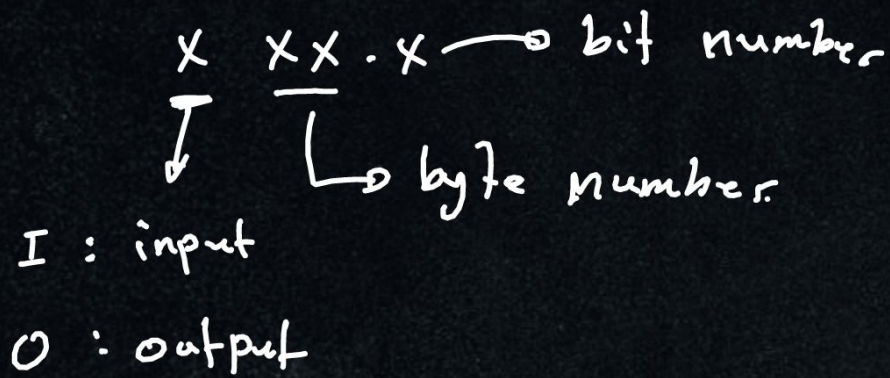 X XX.X bit number
byte number.
I : input
O : output